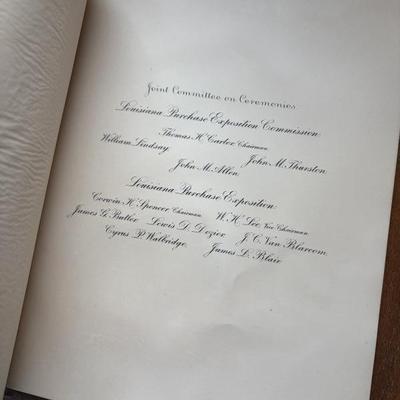 Joint Committee on Ceremonies.
Louisiana Purchase Exposition Commission:
Thomas H. Carter Chairman
William Lindsay John M. Thurston
John M. Allen
Louisiana Purchase Exposition:
Corwin H. Spencer Chairman W. H. Lee Vice Chairman
James G. Butler Lewis D. Dozier J. C. Van Blarcom
Cyrus P. Walbridge James L. Blair